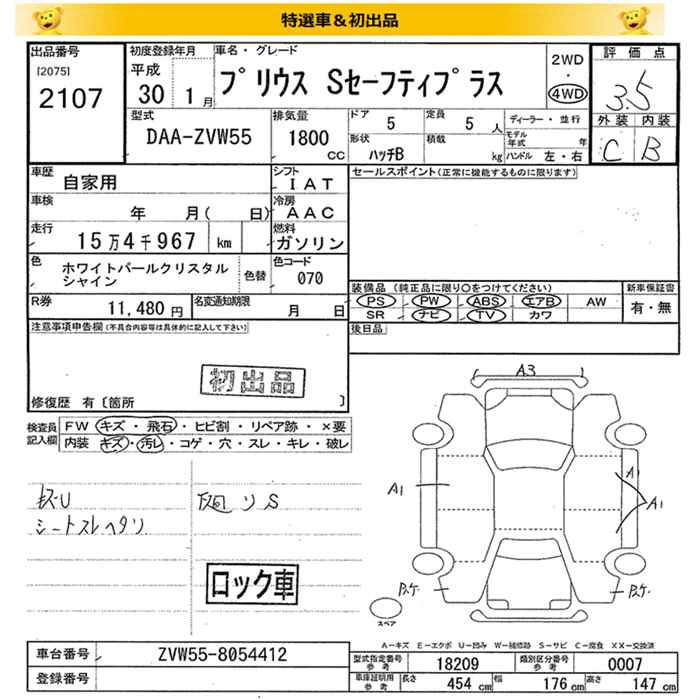 特選車＆初出品
出品番号
[2075]
2107
初度登録年月
平成
30 1月
車名・グレード
プリウス Sセーフティプラス
2WD
・
4WD
評価点
3.5
外装 内装
C B
型式
DAA-ZVW55
排気量
1800
CC
ドア
5
定員
5人
形状
ハッチB
積載
kg
ディーラー・並行
モデル年式 年
ハンドル 左・右
車歴
自家用
シフト
IAT
セールスポイント(正常に機能するものに限ります)
車検
年 月( 日)
冷房
AAC
走行
15万4千967 km
燃料
ガソリン
色
ホワイトパールクリスタル
シャイン
色替
色コード
070
装備品 (純正品に限り○をつけてください)
新車保証書
PS PW ABS エアB AW
有・無
SR ナビ TV カワ
R券
11,480円
名変通知期限
月 日
後日品
注意事項申告欄(不具合内容等は具体的に記入して下さい)
初出品
修復歴 有〔箇所 〕
検査員
記入欄
FW キズ・飛石・ヒビ割・リペア跡・×要
内装 キズ・汚レ・コゲ・穴・スレ・キレ・破レ
シートスレヘタリ
ロック車
A3
A1
A1
A1
P.ケ
P.ケ
スペア
A－キズ E－エクボ U－凹み W－補修跡 S－サビ C－腐食 XX－交換済
車台番号
ZVW55-8054412
登録番号
型式指定番号
参考
18209
類別区分番号
参考
0007
車庫証明用
参考
長さ
454 cm
幅
176 cm
高さ
147 cm